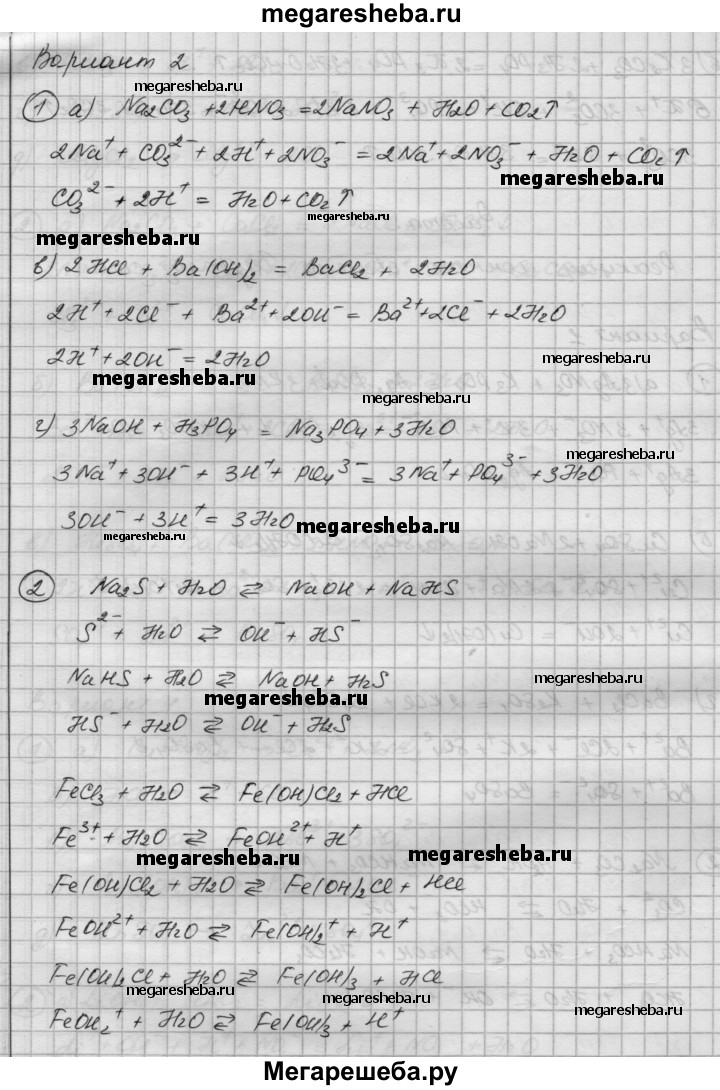 megaresheba.ru
Вариант 2
megaresheba.ru
megaresheba.ru
① а) Na2CO3 + 2HNO3 = 2NaNO3 + H2O + CO2↑
2Na⁺ + CO3²⁻ + 2H⁺ + 2NO3⁻ = 2Na⁺ + 2NO3⁻ + H2O + CO2↑
megaresheba.ru
CO3²⁻ + 2H⁺ = H2O + CO2↑
megaresheba.ru
megaresheba.ru
в) 2HCl + Ba(OH)2 = BaCl2 + 2H2O
2H⁺ + 2Cl⁻ + Ba²⁺ + 2OH⁻ = Ba²⁺ + 2Cl⁻ + 2H2O
2H⁺ + 2OH⁻ = 2H2O
megaresheba.ru
megaresheba.ru
megaresheba.ru
г) 3NaOH + H3PO4 = Na3PO4 + 3H2O
megaresheba.ru
3Na⁺ + 3OH⁻ + 3H⁺ + PO4³⁻ = 3Na⁺ + PO4³⁻ + 3H2O
3OH⁻ + 3H⁺ = 3H2O
megaresheba.ru
megaresheba.ru
② Na2S + H2O ⇄ NaOH + NaHS
megaresheba.ru
S²⁻ + H2O ⇄ OH⁻ + HS⁻
NaHS + H2O ⇄ NaOH + H2S
megaresheba.ru
megaresheba.ru
HS⁻ + H2O ⇄ OH⁻ + H2S
FeCl3 + H2O ⇄ Fe(OH)Cl2 + HCl
Fe³⁺ + H2O ⇄ FeOH²⁺ + H⁺
megaresheba.ru
megaresheba.ru
Fe(OH)Cl2 + H2O ⇄ Fe(OH)2Cl + HCl
FeOH²⁺ + H2O ⇄ Fe(OH)2⁺ + H⁺
Fe(OH)2Cl + H2O ⇄ Fe(OH)3 + HCl
megaresheba.ru
megaresheba.ru
megaresheba.ru
FeOH2⁺ + H2O ⇄ Fe(OH)3 + H⁺
Мегарешеба.ру